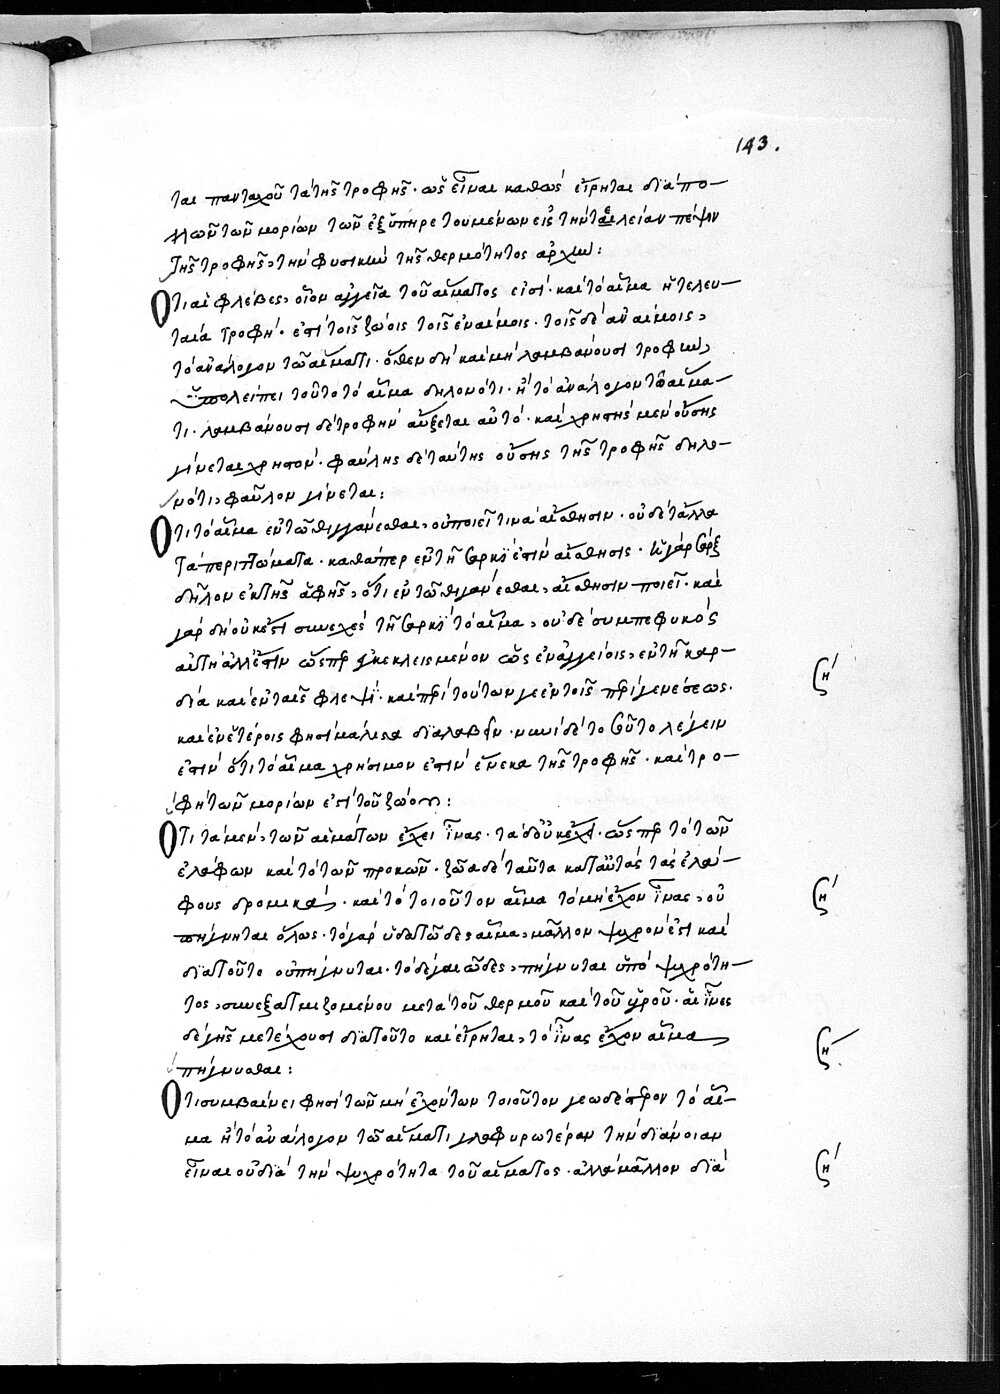 143.
ται πανταχοῦ τὰ τῆς τροφῆς· ὡς εἶναι καθὼς εἴρηται διὰ πο-
λλῶν τῶν μορίων τῶν ἐξυπηρετουμένων εἰς τὴν τελείαν πέψιν
τῆς τροφῆς, τὴν φυσικὴν τῆς θερμότητος ἀρχήν:
Ὅτι αἱ φλέβες, οἷον ἀγγεῖα τοῦ αἵματος εἰσί· καὶ τὸ αἷμα ἡ τελευ-
ταία τροφή· ἐπὶ τοῖς ζώοις τοῖς ἐναίμοις· τοῖς δὲ ἀναίμοις,
τὸ ἀνάλογον τῷ αἵματι· ὅθεν δὴ καὶ μὴ λαμβάνουσι τροφὴν,
ὑπολείπει τοῦτο τὸ αἷμα δηλονότι· ἢ τὸ ἀνάλογον τῷ αἵμα-
τι· λαμβάνουσι δὲ τροφὴν αὔξεται αὐτό· καὶ χρηστῆς μὲν οὔσης
γίνεται χρηστόν· φαύλης δὲ ταύτης οὔσης τῆς τροφῆς δηλο-
νότι, φαῦλον γίνεται:
Ὅτι τὸ αἷμα ἐν τῷ θιγγάνεσθαι, οὐ ποιεῖ τινὰ αἴσθησιν· οὐδὲ τἄλλα
τὰ περιττώματα· καθάπερ ἐν τῇ σαρκὶ ἐστὶν αἴσθησις· ἡ γὰρ σὰρξ
δῆλον ἐκ τῆς ἁφῆς, ὅτι ἐν τῷ θιγάνεσθαι, αἴσθησιν ποιεῖ· καὶ
γὰρ δὴ οὐκ ἔστι συνεχὲς τῇ σαρκὶ τὸ αἷμα, οὐδὲ συμπεφυκὸς
αὐτῇ ἀλλ' ἔστιν ὥσπερ ἐγκεκλεισμένον ὡς ἐν ἀγγείοις, ἐν τῇ καρ-
δία καὶ ἐν ταῖς φλεψί· καὶ περὶ τούτων γε ἐν τοῖς περὶ γενέσεως·
καὶ ἐν ἑτέροις φησὶ μάλιστα διαλαβεῖν· νυνὶ δὲ τοσοῦτο λέγειν
ἐστὶν ὅτι τὸ αἷμα χρήσιμον ἐστὶν ἕνεκα τῆς τροφῆς· καὶ τρο-
φὴ τῶν μορίων ἐστὶ τοῦ ζώου:
Ὅτι τὰ μὲν, τῶν αἱμάτων ἔχει ἶνας· τὰ δὲ οὐκ ἔχει· ὥσπερ τὸ τῶν
ἐλάφων καὶ τὸ τῶν προκῶν· ζῶα δὲ ταῦτα κατ' αὐτὰς τὰς ἐλάφ-
φους δρομικά· καὶ τὸ τοιοῦτον αἷμα τὸ μὴ ἔχον ἶνας, οὐ
πήγνυται ὅλως· τὸ γὰρ ὑδατῶδες αἷμα, μᾶλλον ψυχρὸν ἐστὶ καὶ
διὰ τοῦτο οὐ πήγνυται· τὸ δὲ γαιῶδες, πήγνυται ὑπὸ ψυχρότη-
τος, συνεξατμιζομένου μετὰ τοῦ θερμοῦ καὶ τοῦ ὑγροῦ· αἱ ἶνες
δὲ γῆς μετέχουσι διὰ τοῦτο καὶ εἴρηται, τὸ ἶνας ἔχον αἷμα
πήγνυσθαι:
Ὅτι συμβαίνει φησὶ τῶν μὴ ἐχόντων τοιοῦτον γεωδέστερον τὸ αἷ-
μα ἢ τὸ ἀνάλογον τῷ αἵματι γλαφυρωτέραν τὴν διάνοιαν
εἶναι οὐ διὰ τὴν ψυχρότητα τοῦ αἵματος· ἀλλὰ μᾶλλον διὰ